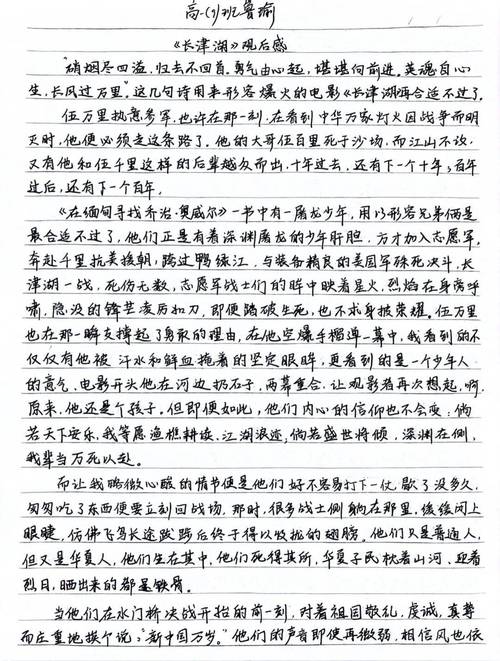 高一(9)班鲁瑜
《长津湖》观后感
"硝烟尽四溢,归去不回首。勇气由心起,堪堪向前进。英魂自心
生,长风过万里。"这几句诗用来形容爆火的电影《长津湖》再合适不过了。
伍万里执意参军,也许在那一刻,在看到中华万家灯火因战争而明
灭时,他便必须走这条路了。他的大哥伍百里死于沙场,而江山不议,
又有他和伍千里这样的后辈越众而出,十年过去,还有下一个十年,百年
过后,还有下一个百年。
《在缅甸寻找乔治·奥威尔》一书中有一屠龙少年,用以形容兄弟俩是
最合适不过了,他们正是有着深渊屠龙的少年肝胆,方才加入志愿军,
奔赴千里抗美援朝,跨过鸭绿江,与装备精良的美国军殊死决斗,长
津湖一战,死伤无数,志愿军战士们的眸中映着星火,烈焰在身旁呼
啸,隐没的锋芒凌厉如刀,即便踏破生死,也不求身披荣耀。伍万里
也在那一瞬支撑起了勇敢的理由,在他空爆手榴弹一幕中,我看到的不
仅仅有他被 汗水和鲜血掩着的坚定眼眸,更看到的是一个少年人
的意气。电影开头他在河边扔石子,两幕重合,让观影者再次想起,啊,
原来,他还是个孩子。但即便如此,他们内心的信仰也不会变:倘
若天下安乐,我等愿渔樵耕读,江湖浪迹;倘若盛世将倾,深渊在侧,
我辈当万死以赴。
而让我略微心酸的情节便是他们好不容易打下一仗,歇了没多久,
匆匆吃了东西便要立刻回战场。那时,很多战士侧躺在那里,缓缓闭上
眼睫,仿佛飞鸟长途跋涉后终于得以收拢的翅膀。他们只是普通人,
但又是华夏人,他们生在其中,他们死得其所,华夏子民枕着山河,迎着
烈日,晒出来的都是铁骨。
当他们在水门桥决战开始的前一刻,对着祖国敬礼,虔诚,真挚
而庄重地挨个说:"新中国万岁。"他们的声音即使再微弱,相信风也依